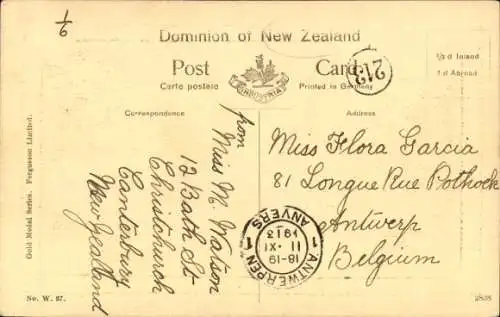 1/6
Dominion of New Zealand
Post Card
Carte postale
Printed in Germany
INDUSTRIA
½d Inland
1d Abroad
212
Correspondence
Address
from
Miss M. Watson
12 Bath St
Christchurch
Canterbury
New Zealand
Miss Flora Garcia
81 Longue Rue Pothock
Antwerp
Belgium
1 ANTWERPEN 1
18-19
11 XI
1913
ANVERS
Gold Medal Series. Fergusson Limited.
No. W. 67.
2838